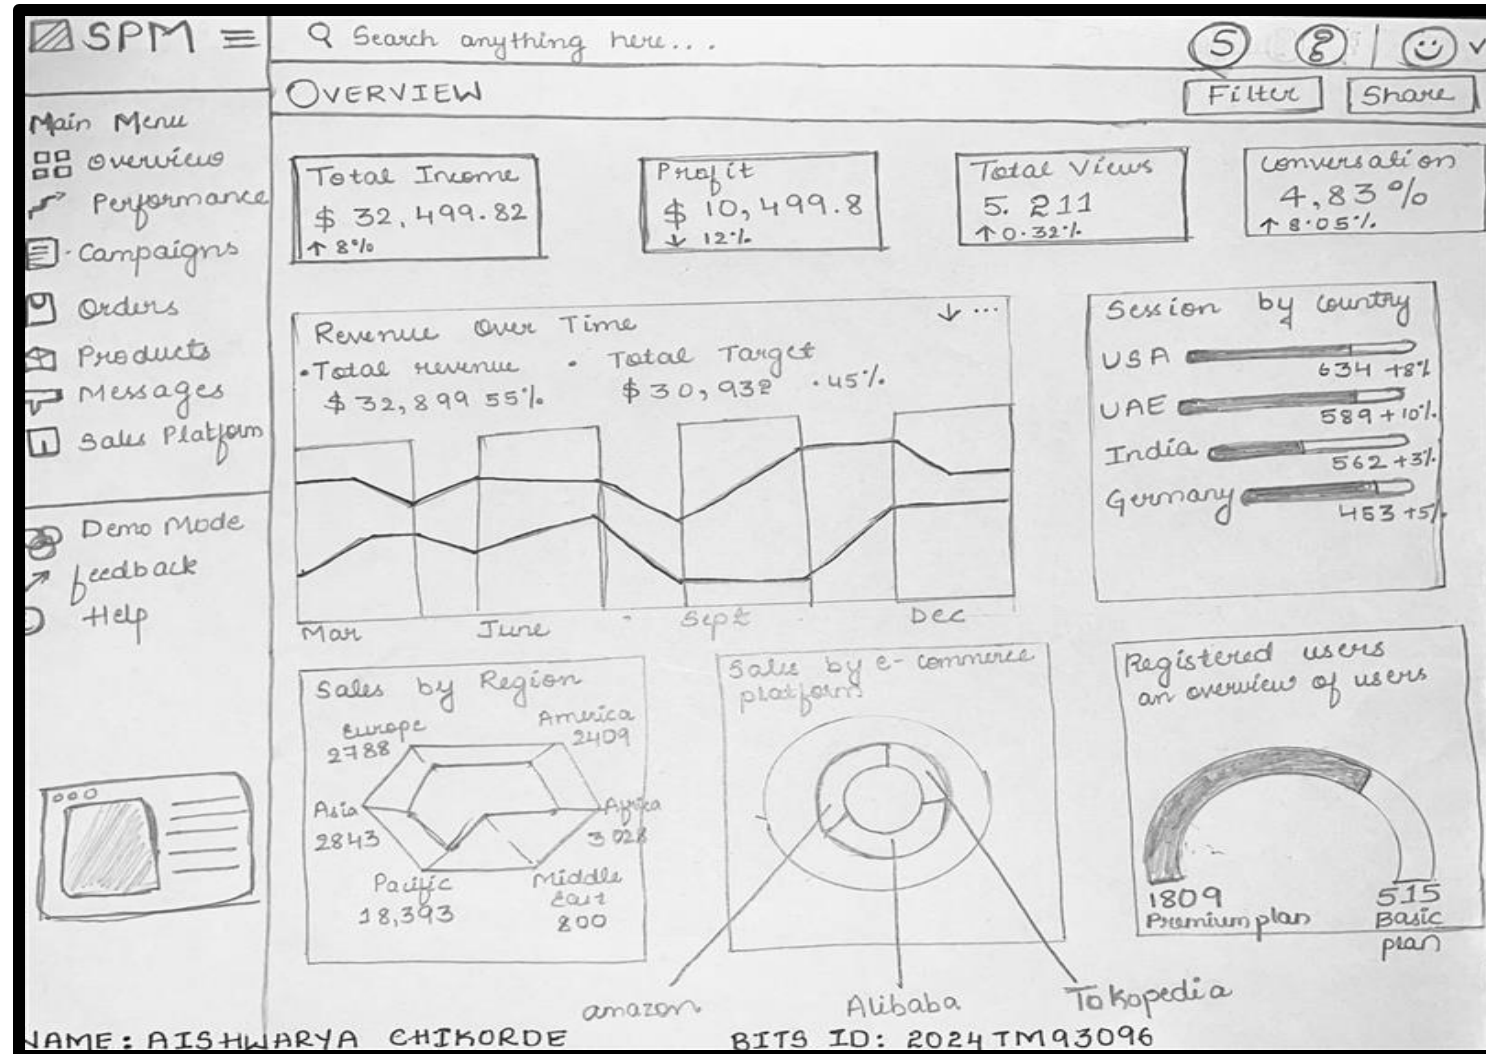 SPM
Search anything here...
S ?
OVERVIEW
Filter Share
Main Menu
Overview
Performance
Campaigns
Orders
Products
Messages
Sales Platform
Demo Mode
feedback
Help
Total Income
$ 32,499.82
↑ 8%
Profit
$ 10,499.8
↓ 12%
Total Views
5. 211
↑ 0.32%
Conversation
4,83%
↑ 8.05%
Revenue Over Time ↓ ...
• Total revenue • Total Target
$ 32,899 55% $ 30,932 • 45%
Mar June Sept Dec
Session by country
USA
634 +8%
UAE
589 +10%
India
562 +3%
Germany
453 +5%
Sales by Region
Europe
2788
America
2409
Asia
2843
Africa
3028
Pacific
18,393
Middle
East
800
Sales by e-commerce
platform
amazon Alibaba Tokopedia
Registered users
an overview of users
1809
Premium plan
515
Basic
plan
NAME: AISHWARYA CHIKORDE BITS ID: 2024TM93096